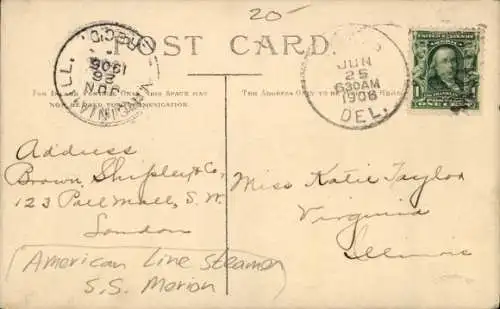 20-
POST CARD
REC'D.
26
JUN
1906
VIRGINIA ILL.
JUN
25
630AM
1906
DEL.
ONE
FOR INLAND POSTAGE ONLY THIS SPACE MAY
NOT BE USED FOR COMMUNICATION.
THE ADDRESS ONLY TO BE HERE
Address
Brown, Shipley & Co,
123 Pall Mall, S. W.
London
Miss Katie Taylor
Virginia
Illinois
American Line Steamer
S.S. Merion